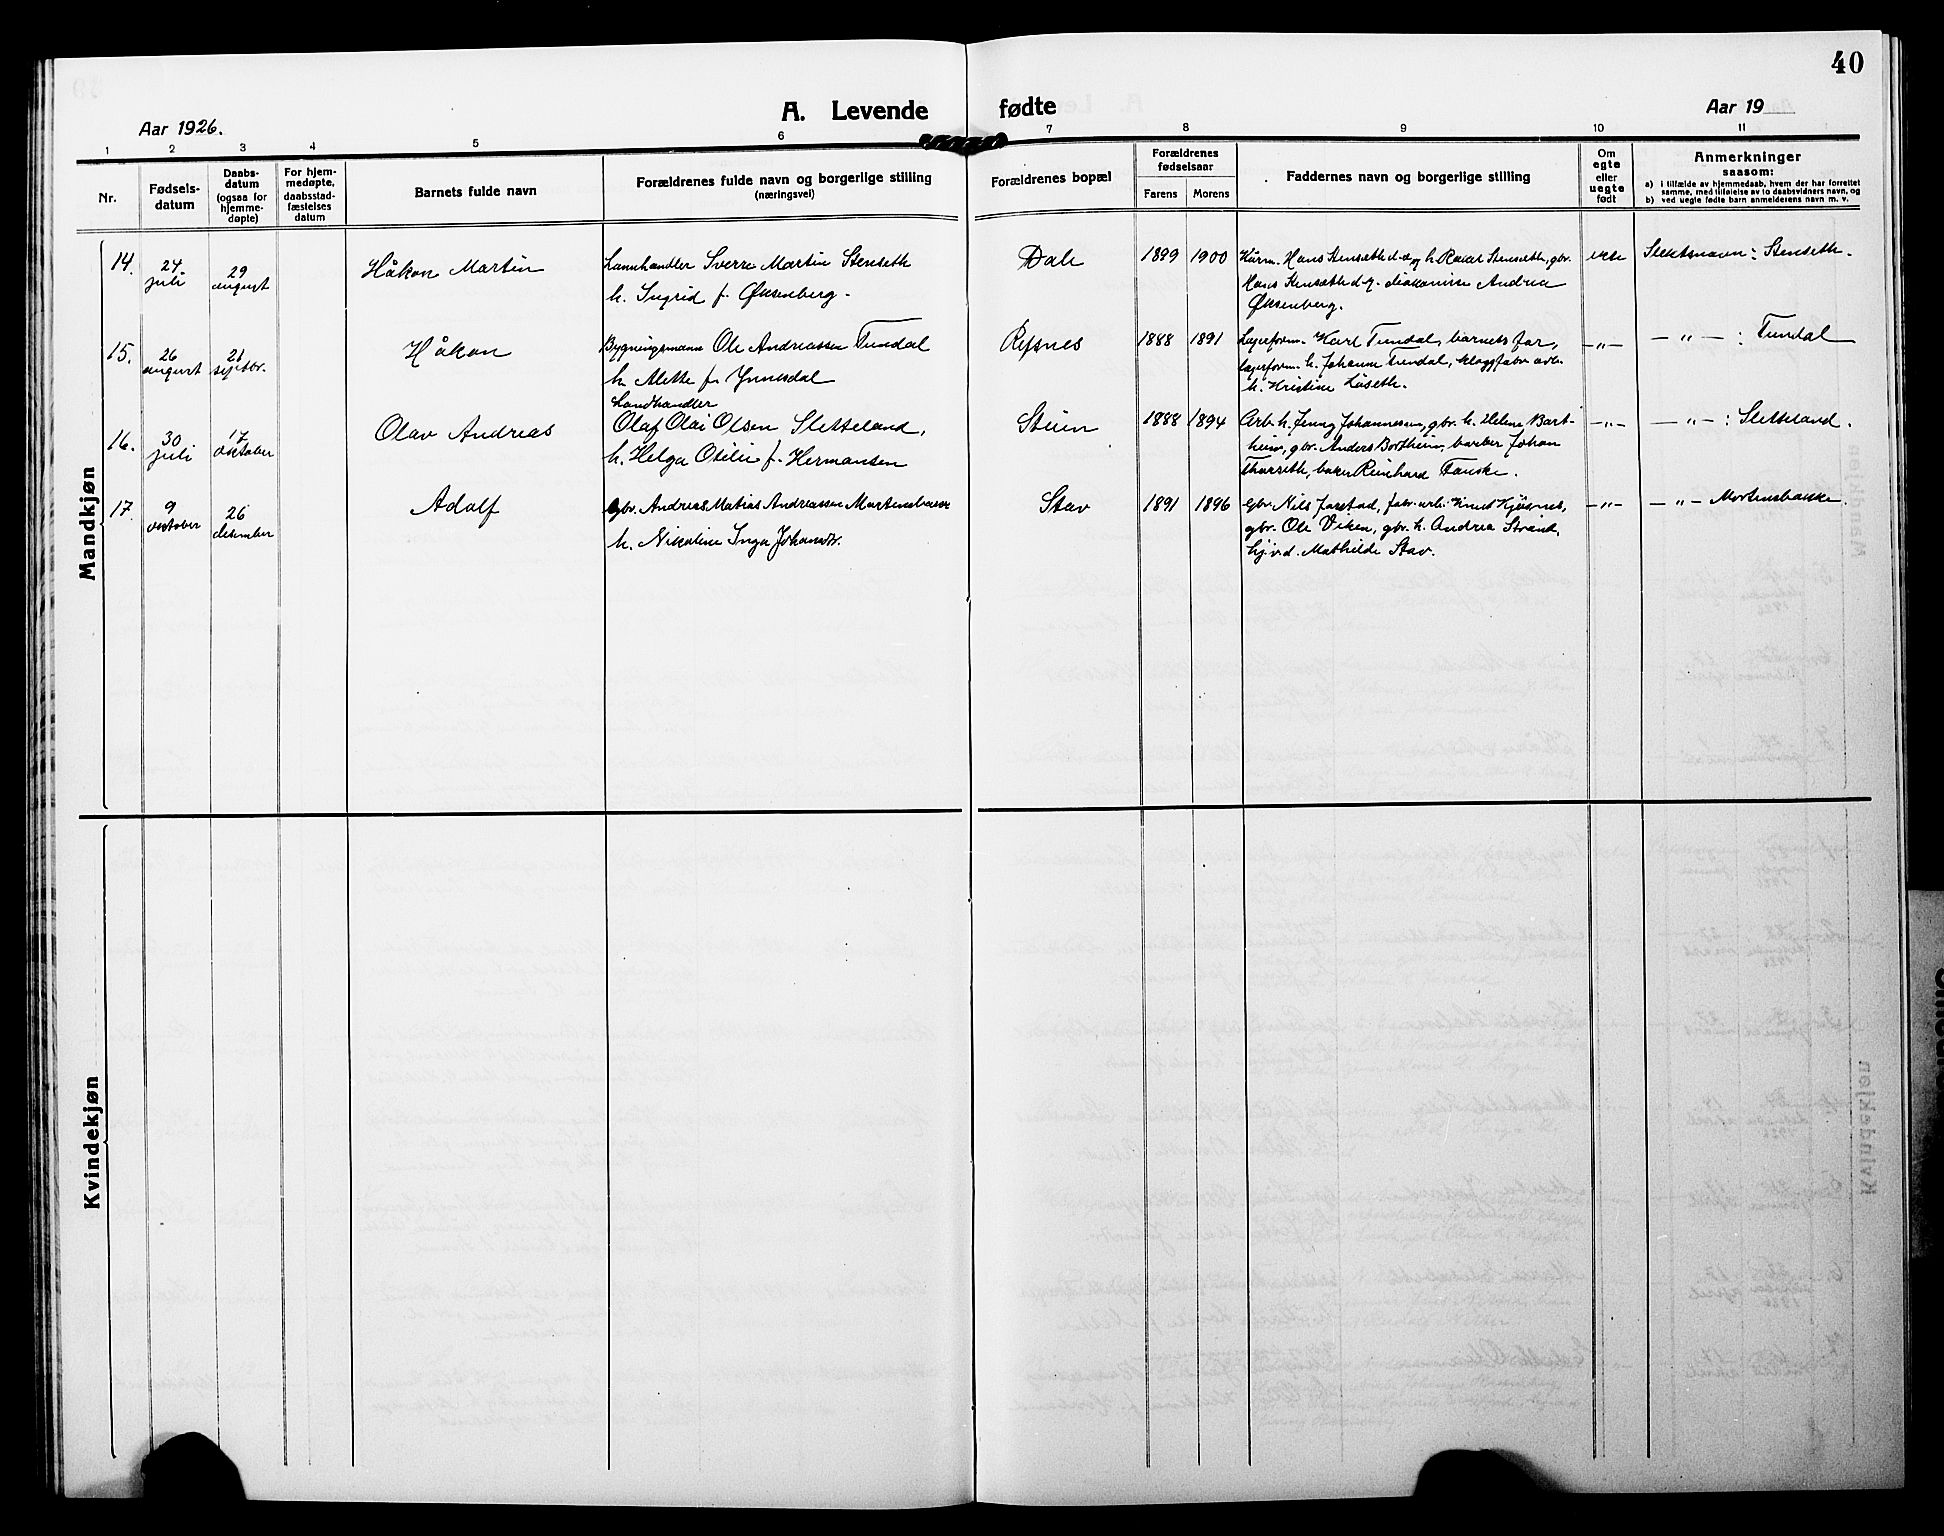 40
A. Levende fødte
Aar 1926.
Aar 19
1 2 3 4 5 6 7 8 9 10 11
Nr.
Fødsels-
datum
Daabs-
datum
(ogsaa for
hjemme-
døpte)
For hjem-
medøpte,
daabsstad-
fæstelses
datum
Barnets fulde navn
Forældrenes fulde navn og borgerlige stilling
(næringsvei)
Forældrenes bopæl
Forældrenes
fødselsaar
Farens Morens
Faddernes navn og borgerlige stilling
Om
egte
eller
uegte
født
Anmerkninger
saasom:
a) i tilfælde av hjemmedaab, hvem der har forrettet
samme, med tilføielse av to daabsvidners navn, og
b) ved uegte fødte barn anmelderens navn m. v.
Mandkjøn
14.
24
juli
29
august
Håkon Martin
Sverre Martin Stenseth
h. Ingrid f. Øksenberg.
Dale
1899 1900
Hans Stenseth h. Stenseth, gbr.
Hans Stenseth diakonisse Andrea
Øksenberg.
ekte
Slektsnavn: Stenseth.
15.
26
august
21
septbr.
Håkon
Bygningsmann Ole Andreassen Tundal
h. Alette f. Ynnesdal
Rysnes
1888 1891
Lagerform. Karl Tundal, barnets far,
lagerform. h. Johanne Tundal, arb.
h. Kristine Løseth.
— „ —
— „ — : Tundal
16.
30
juli
17
oktober
Olav Andreas
Landhandler
Olaf Olai Olsen Sletteland,
h. Helga Otilie f. Hermansen
Steien
1888 1894
Arb. h. Jenny Johannessen, gbr. h. Helene Bort-
heim, gbr. Anders Bortheim, barber Johan
Thorseth, baker Reinhard Fauske.
— „ —
— „ — : Sletteland.
17.
9
oktober
26
desember
Adolf
gbr. Andreas Matias Andreassen Mortensbakke
h. Nikoline Inga Johansdr.
Stav
1891 1896
gbr. Nils Jarstad, fabr. arb. Knud
gbr. Ole Viken, gbr. h. Andrea Strand,
Mathilde Stav.
— „ —
— „ — Mortensbakke.
Kvindekjøn